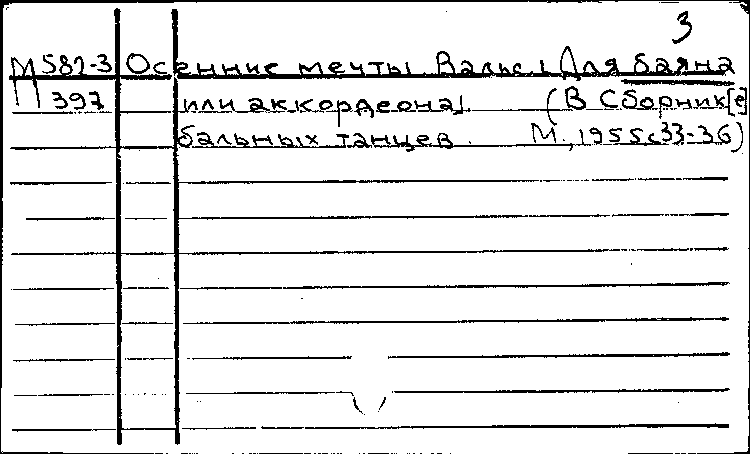 3
М 581-3 Осенние мечты. Вальс. [Для баяна
П 397 или аккордеона]. (В Сборник[е]
бальных танцев. М., 1955 с 33-36)